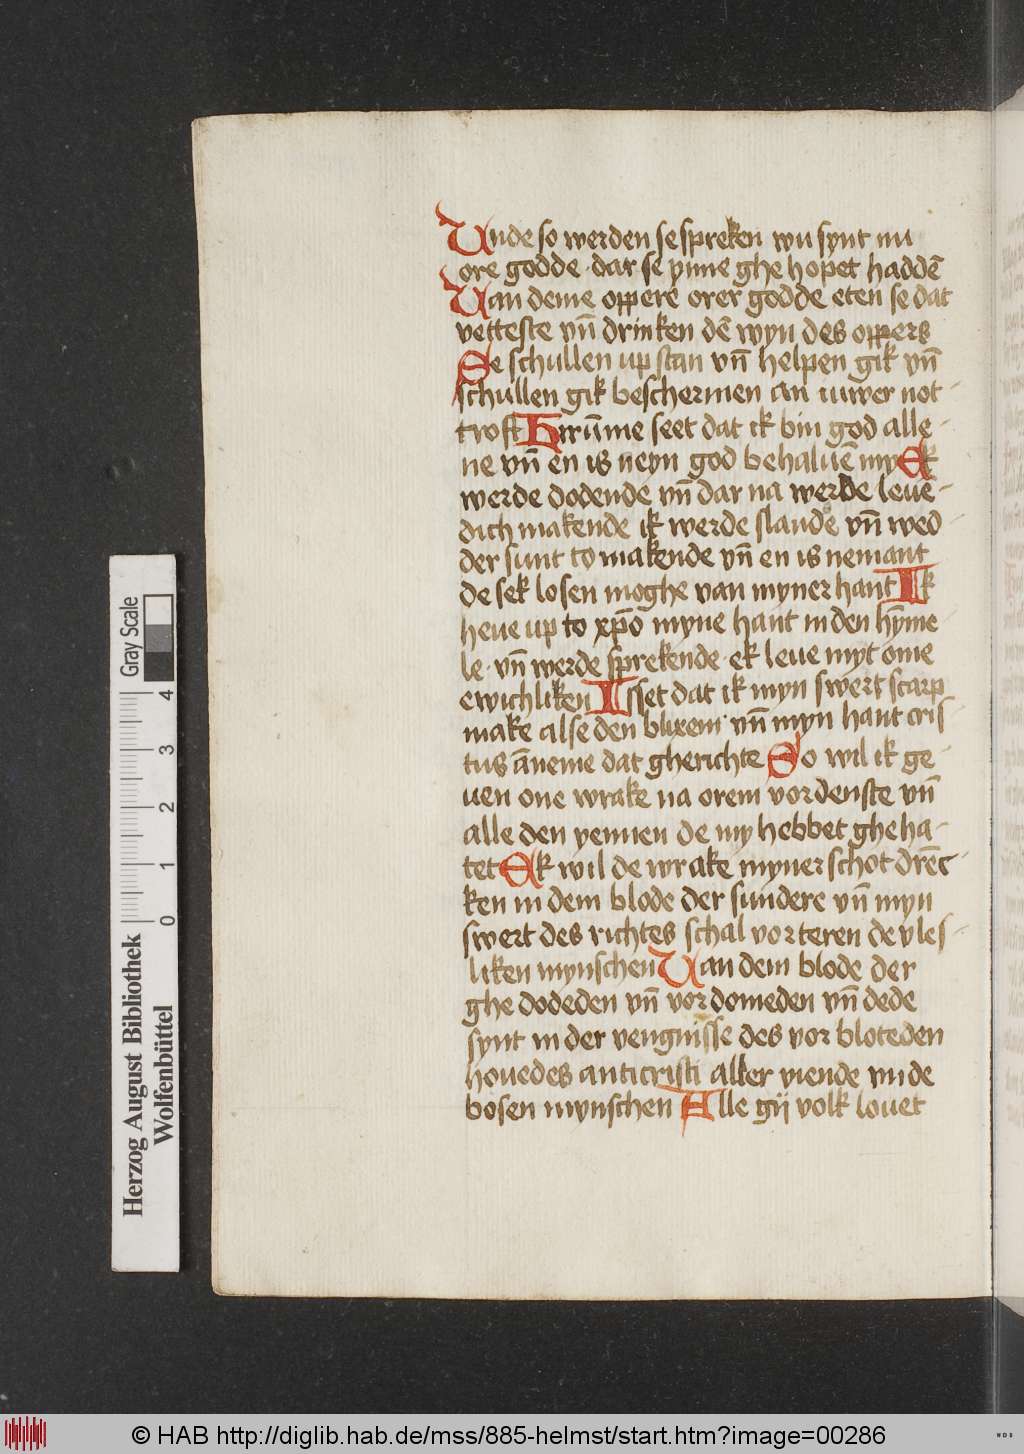 Unde so werden se spreken wu synt nu
ore godde · dar se ynne ghe hopet haddē
Uan deme oppere orer godde eten se dat
vetteste vn̄ drinken dē wyn des oppers
Se schullen up stan vn̄ helpen gik vn̄
schullen gik beschermen an iuwer not-
troft Hirūme seet dat ik bin god alle-
ne vn̄ en is neyn god behaluē my Ek
werde dodende vn̄ dar na werde leue-
dich makende ik werde slande vn̄ wed-
der sunt to makende vn̄ en is nemant
de sek losen moghe van myner hant Ik
heue up to xp̄o myne hant in den hȳme-
le · vn̄ werde sprekende · ek leue myt ome
ewichliken Isset dat ik myn swert scarp
make alse den blixem · vn̄ myn hant cris-
tus āneme dat gherichte So wil ik ge-
uen one wrake na orem vordenste vn̄
alle den yennen de my hebbet gheha-
tet Ek wil de wrake myner schot drēc-
ken in dem blode der sundere vn̄ myn
swert des richtes schal vorteren de vles-
liken mynschen Uan dem blode der
ghe dodeden vn̄ vordomeden vn̄ dede
synt in der vengnisse des vor bloteden
houedes anticristi aller viende vnde
bosen mynschen Alle gij volk louet
Gray Scale
4 3 2 1 0
Herzog August Bibliothek
Wolfenbüttel
© HAB http://diglib.hab.de/mss/885-helmst/start.htm?image=00286